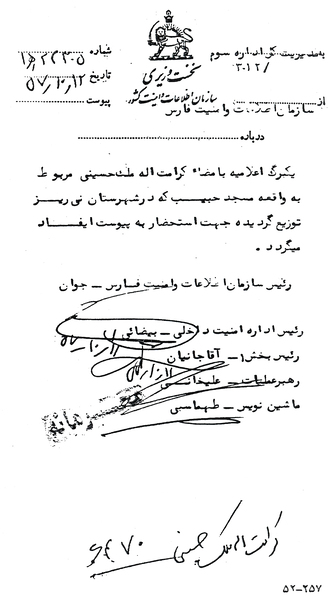 به مدیریت کل اداره سوم
۳۰۱۲/
نخست وزیری
سازمان اطلاعات و امنیت کشور
شماره
تاریخ ۵۷/۱۰/۱۲
پیوست
از
سازمان اطلاعات و امنیت فارس
درباره
یکبرگ اعلامیه بامضاء کرامت اله ملک‌حسینی مربوط
به واقعه مسجد حبیب که در شهرستان نی ریز
توزیع گردیده جهت استحضار به پیوست ایفاد
میگردد .
رئیس سازمان اطلاعات و امنیت فارس - جوان
رئیس اداره امنیت داخلی - بیضائی
رئیس بخش ۱ - آقاجانیان
رهبر عملیات - علیخانی
ماشین نویس - طهماسبی
کرامت اله ملک حسینی
۵۲-۲۵۷